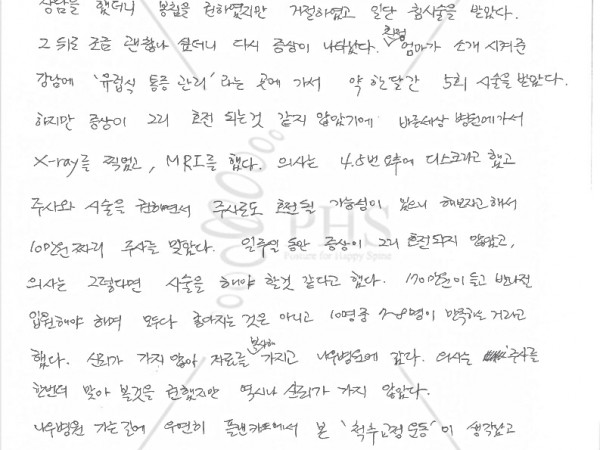 상담을 했더니 봉침을 권하였지만 거절하였고 일단 침시술을 받았다.
그 뒤로 조금 괜찮나 싶더니 다시 증상이 나타났다. 친정엄마가 소개 시켜준
강남에 '유럽식 통증 관리' 라는 곳에 가서 약 한달간 5회 시술을 받았다.
하지만 증상이 그리 호전 되는것 같지 않았기에 바른세상 병원에가서
X-ray를 찍었고, MRI를 했다. 의사는 4.5번 요추에 디스크라고 했고
주사와 시술을 권하면서 주사로도 호전될 가능성이 있으니 해보자고 해서
10만원 짜리 주사를 맞았다. 일주일 동안 증상이 그리 호전되지 않았고,
의사는 그렇다면 시술을 해야 할것 같다고 했다. 170만원이 들고 반나절
입원해야 하며 모두다 좋아지는 것은 아니고 10명중 7~8명이 만족하는 거라고
했다. 신뢰가 가지 않아 자료를 복사해 가지고 나우병원에 갔다. 의사는 주사를
한번더 맞아 볼것을 권했지만 역시나 신뢰가 가지 않았다.
나우병원 가는길에 우연히 플랜카드에서 본 '척추교정운동'이 생각났고
PHS
Posture for Happy Spine